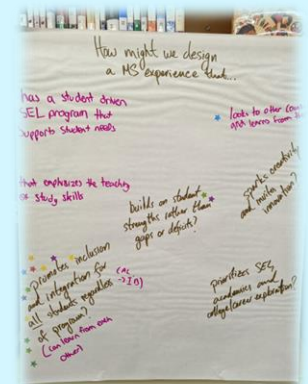 How might we design
a MS experience that...
has a student driven
SEL program that
supports student needs
looks to other
and learns from
that emphasizes the teaching
of study skills
builds on student
strengths rather than
gaps or deficits?
sparks creativity
and invites
innovation?
promotes inclusion
and integration for
all students regardless
of program?
(can learn from each
other)
prioritizes SEL,
academics and
college/career exploration?